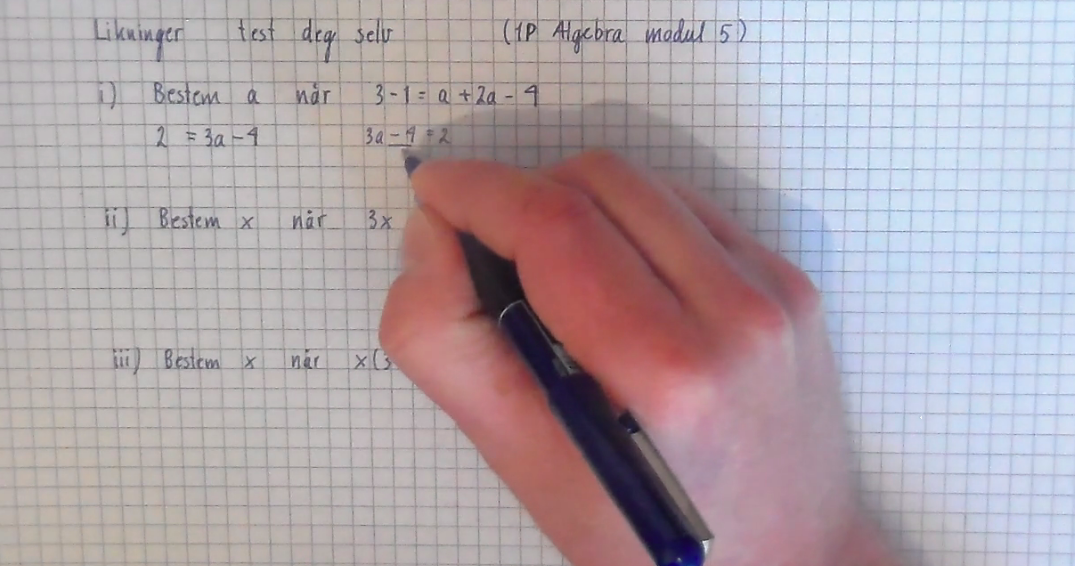 Likninger test deg selv (1P Algebra modul 5)
i) Bestem a når 3-1 = a + 2a - 4
2 = 3a - 4 3a - 4 = 2
ii) Bestem x når 3x
iii) Bestem x når x(3